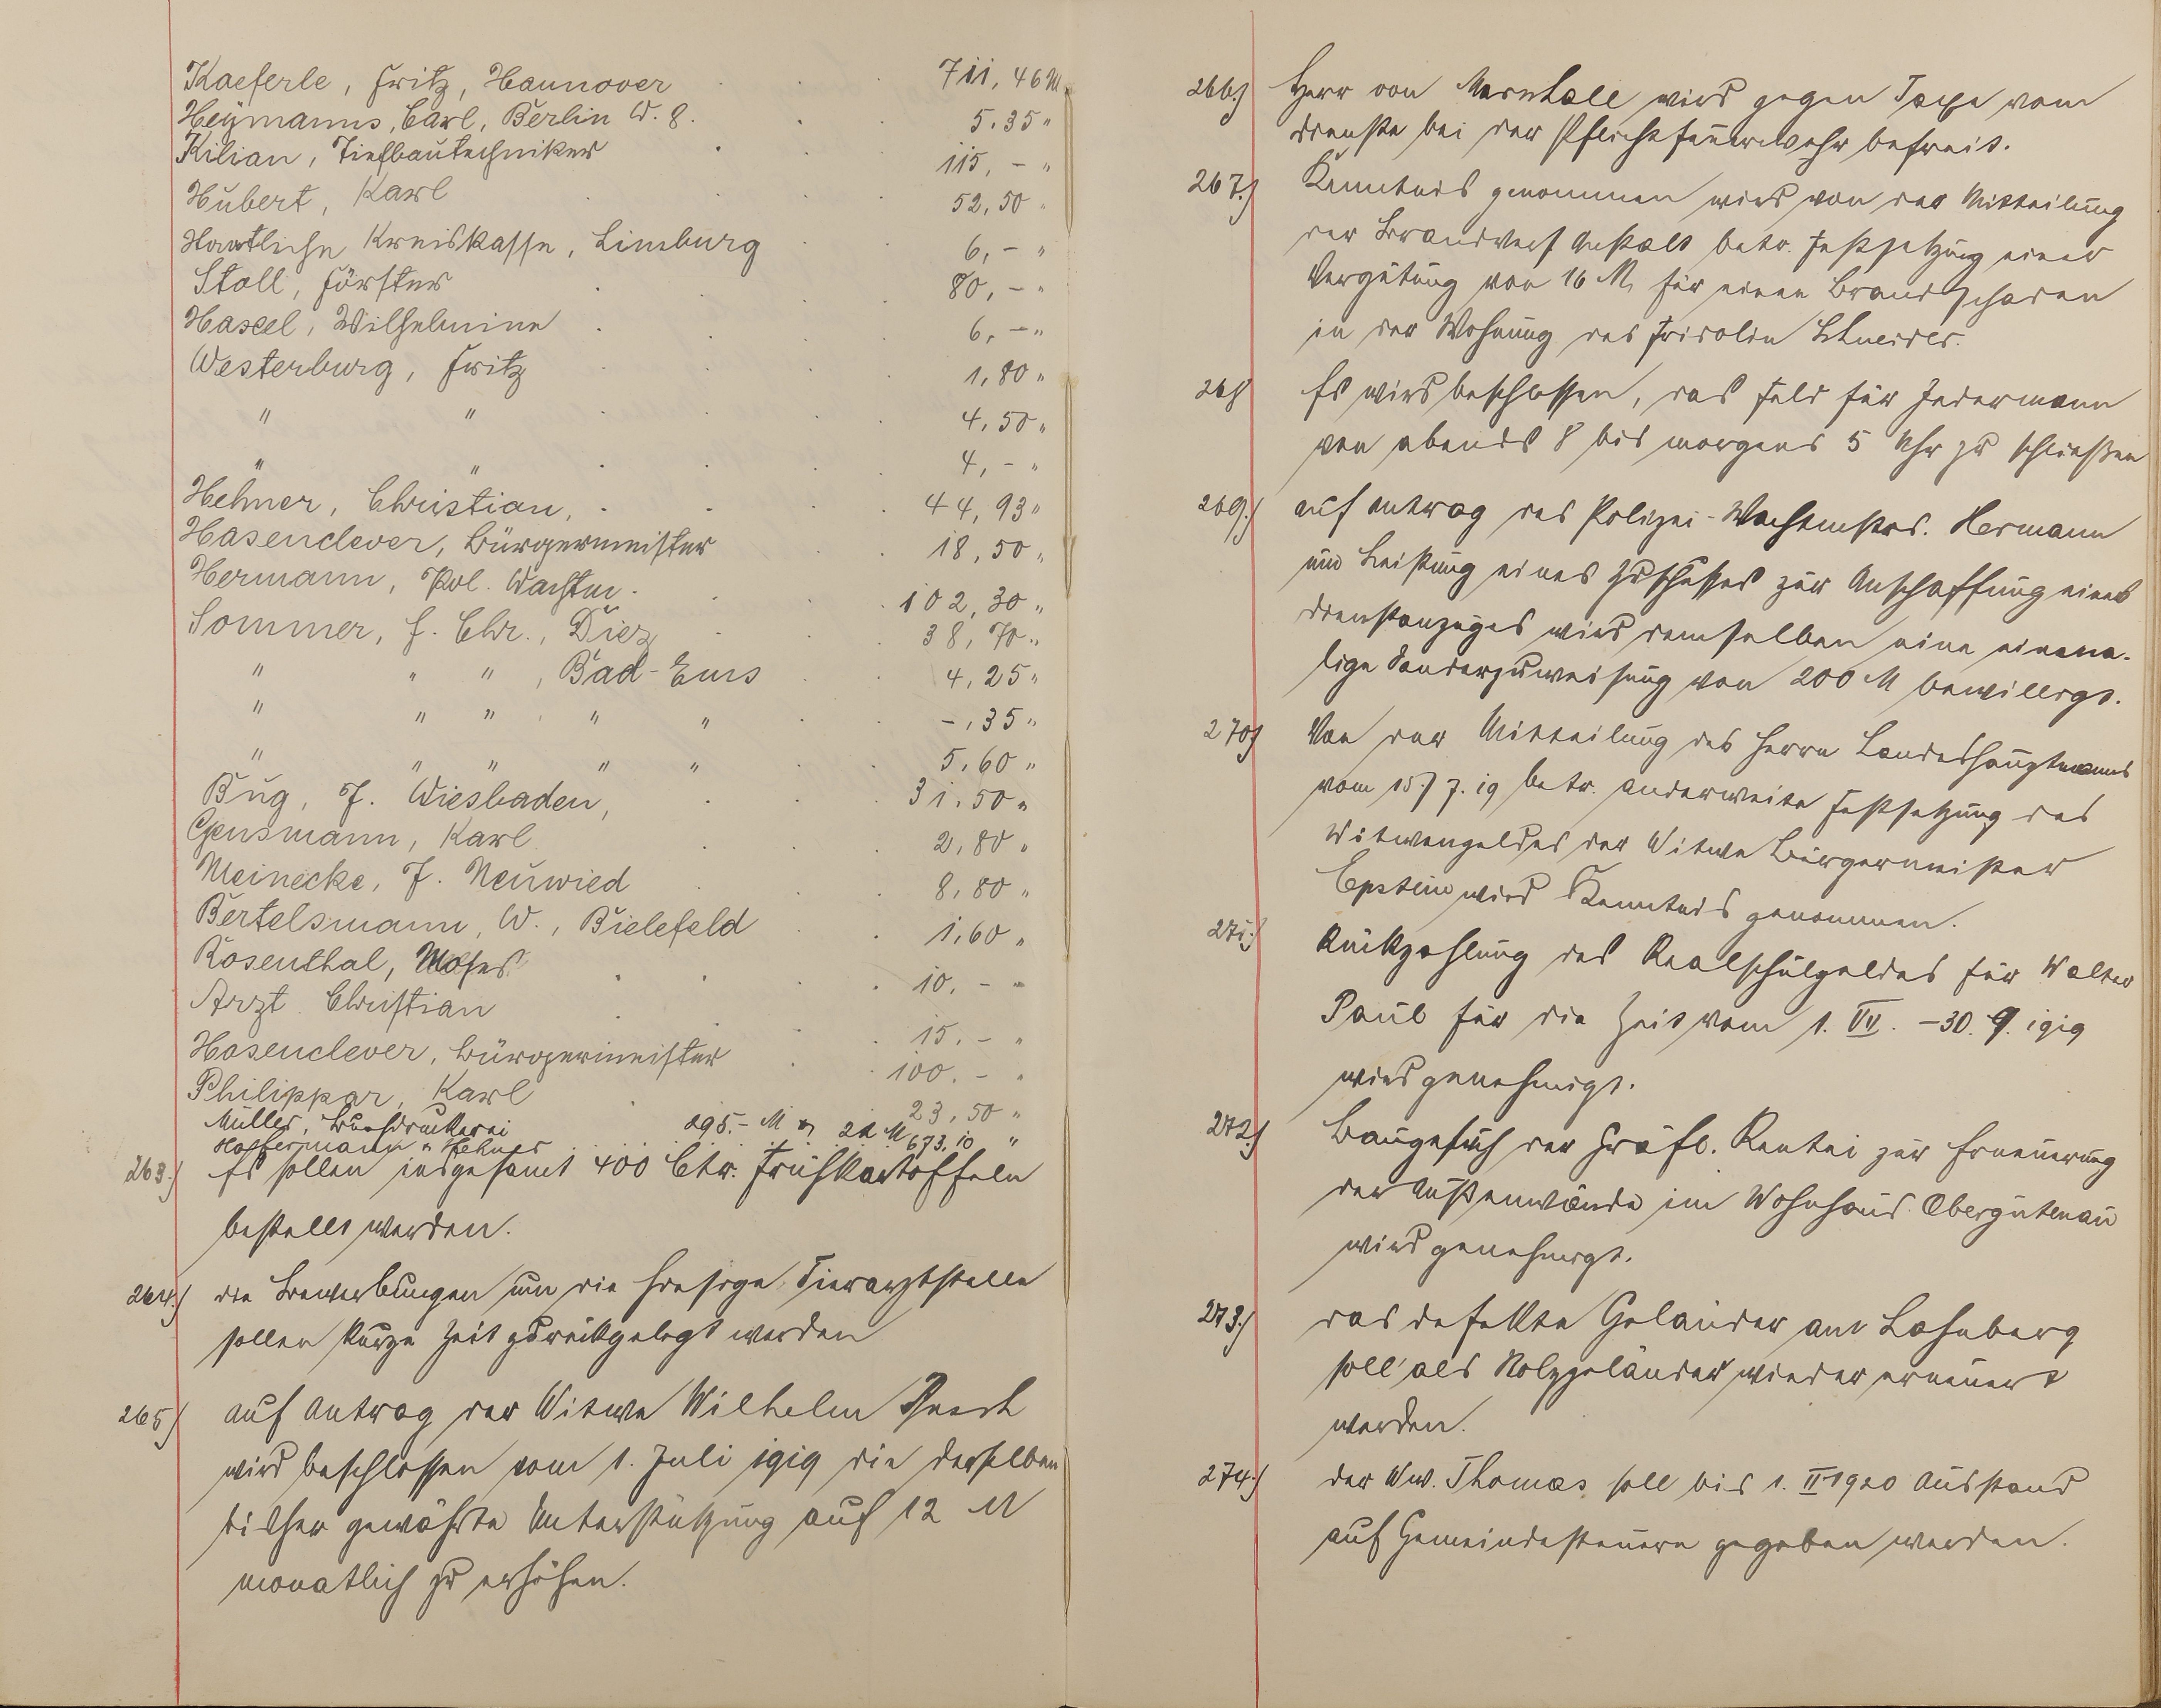 Kaeferle, Fritz, Hannover 711,46 M.
Heymanns, Carl, Berlin W. 8. 5.35 "
Kilian, Tiefbautechniker 115,- "
Hubert, Karl 52,50 "
Staatliche Kreiskasse, Limburg 6,- "
Stoll, Förster 80,- "
Hassel, Wilhelmine 6,- "
Westerburg, Fritz 1,80 "
" " 4,50 "
" " 4,- "
Hehner, Christian, 44,93 "
Hasenclever, Bürgermeister 18,50 "
Hermann, Pol. Wachtm. 102,30 "
Sommer, J. Chr., Diez 38,70 "
" " " , Bad-Ems 4,25 "
" " " " " -,35 "
" " " " " 5,60 "
Bug, J. Wiesbaden, 31,50 "
Gensmann, Karl 2,80 "
Meinecke, J. Neuwied 8,80 "
Bertelsmann, W., Bielefeld 1,60 "
Rosenthal, Moses 10.- "
Arzt Christian
Hasenclever, Bürgermeister 15.- "
Philippar, Karl 100.- "
23,50 "
Müller, Buchdruckerei 295.- M 21 M
Hoffermann u Hehner 673,10 "
263.) Es sollen insgesamt 400 Ctr. Frühkartoffeln
bestellt werden.
264.) die Bewerbungen um die hiesige Tierarztstelle
sollen kurze Zeit zurückgelegt werden
265) auf Antrag der Witwe Wilhelm
wird beschlossen vom 1. Juli 1919 die derselben
bisher gewährte Unterstützung auf 12 M
monatlich zu erhöhen.
266.) Herr von Marshall wird gegen Taxe vom
dienste bei der Pflichtfeuerwehr befreit.
267.) Kenntnis genommen wird von der Mitteilung
der Brandvers Anstalt betr. Festsetzung einer
Vergütung von 16 M. für einen Brandschaden
in der Wohnung des Fridolin Schneider.
268 Es wird beschlossen, das Feld für Jedermann
von abends 8 bis morgens 5 Uhr zu schließen
269.) auf Antrag des Polizei-Wachtmstrs. Hermann
um Leistung eines Zuschusses zur Anschaffung eines
dienstanzuges wird demselben eine einma-
lige Sonderzuweisung von 200 M bewilligt.
270) Von der Mitteilung des Herrn Landeshauptmanns
vom 15.) 7. 19 betr. anderweite Festsetzung des
Witwengeldes der Witwe Bürgermeister
Epstein wird Kenntnis genommen.
271.) Rückzahlung des Realschulgeldes für Walter
Paul für die Zeit vom 1. VII. - 30. 9. 1919
wird genehmigt.
272.) Baugesuch der Gräfl. Rentei zur Erneuerung
der Außenwände im Wohnhaus Obergutenau
wird genehmigt.
273.) das defekte Geländer am Lahnberg
soll als Holzgeländer wieder erneuert
werden.
274.) der Ww. Thomas soll bis 1. II 1920 Ausstand
auf Gemeindesteuern gegeben werden.